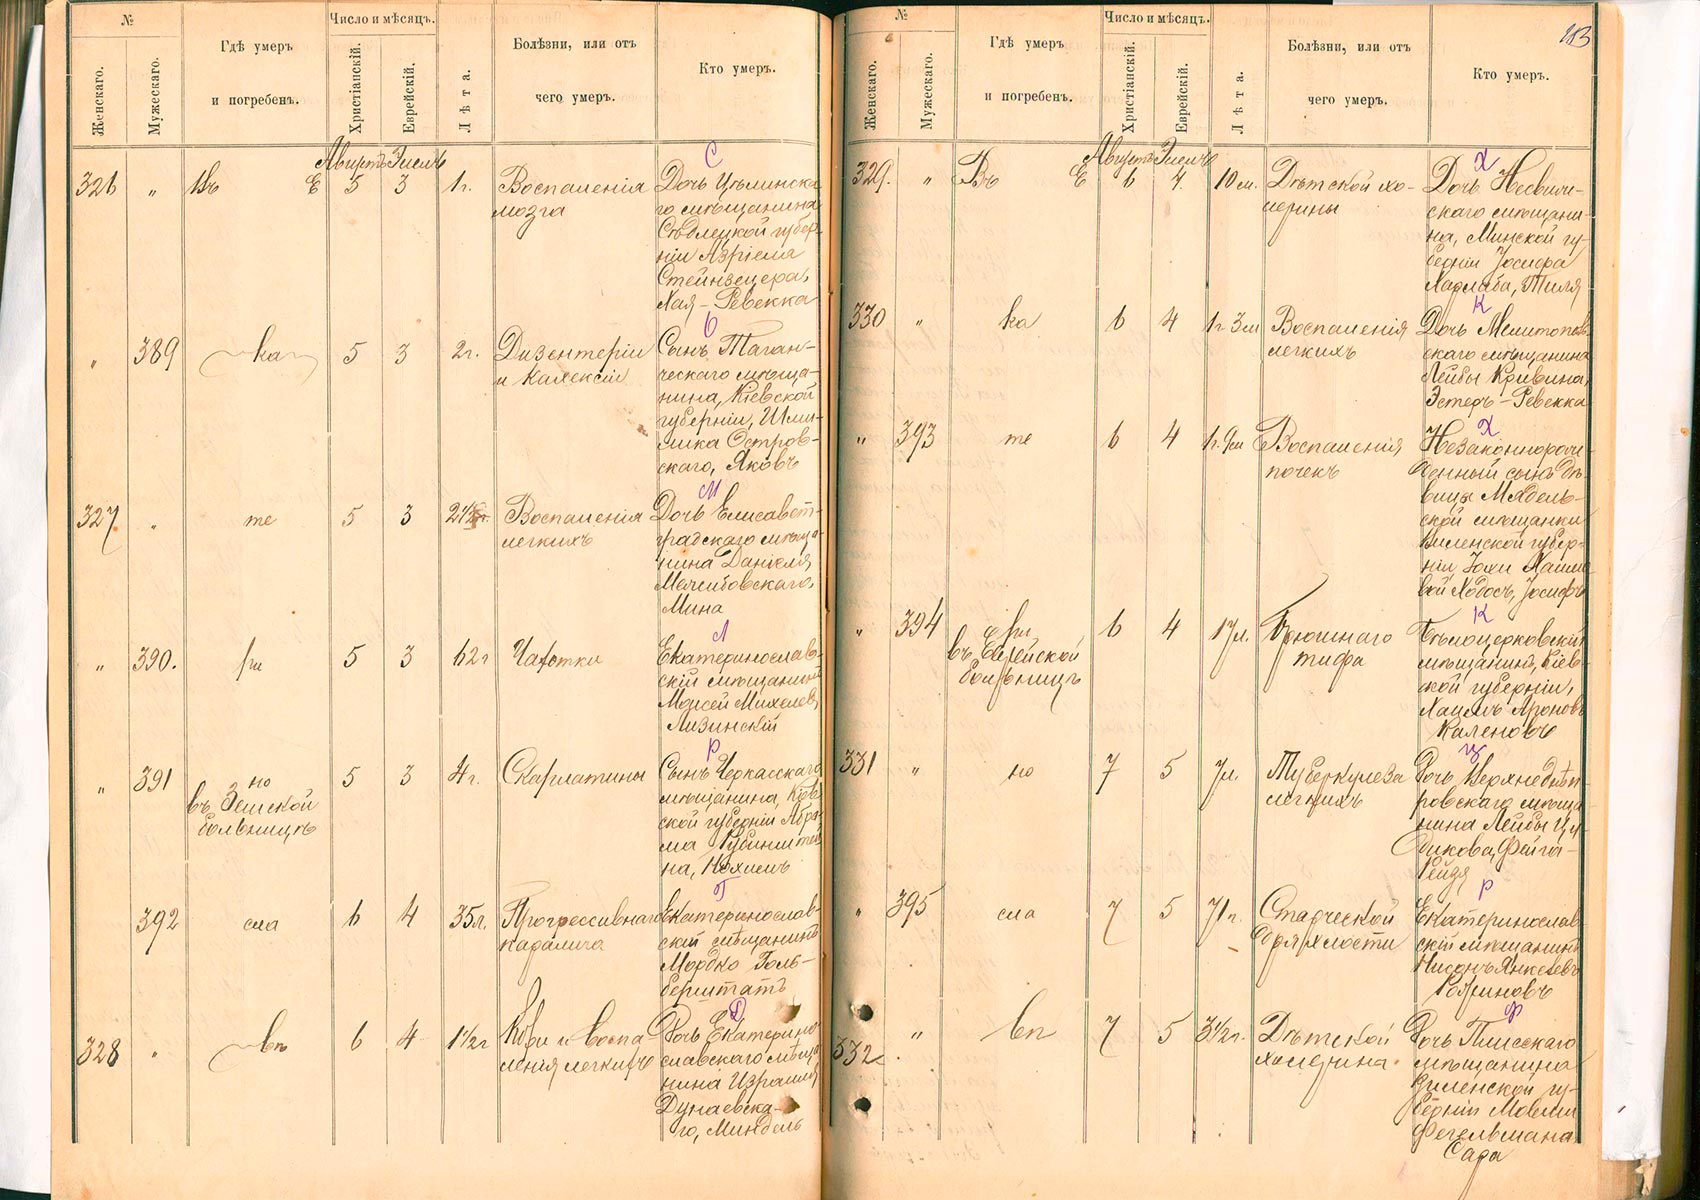 №
Женскаго.
Мужескаго.
Гдѣ умеръ
и погребенъ.
Число и мѣсяцъ.
Христіанскій.
Еврейскій.
Лѣта.
Болѣзни, или отъ
чего умеръ.
Кто умеръ.
Августъ Элелъ
С
326 " Въ Е 5 3 1г.
Воспаленія
мозга
Дочь
го мѣщанина
Сѣдлецкой губер-
ніи Азріеля
Хая-Ревекка
О
" 389 ка 5 3 2г.
Дизентеріи
и Кахексіи
Сынъ Таган-
ческаго мѣща-
нина, Кіевской
губерніи,
Остров-
скаго, Яковъ
М
327 " те 5 3
Воспаленія
легкихъ
Дочь Елисавет-
градскаго мѣща-
нина Даніеля
Мина
Л
" 390. ри 5 3 62г
Чахотки
Екатеринослав-
скій мѣщанинъ
Моисей Михелевъ
Лизинскій
Р
" 391 но 5 3 4г.
въ Земской
больницѣ
Скарлатины
Сынъ Черкасскаго
мѣщанина, Кіев-
ской губерніи Абра-
ма Рубинштей-
на, Нохимъ
Г
392 сла 6 4 35л.
Прогрессивнаго
паралича
Екатеринослав-
скій мѣщанинъ
Мордко Голь-
берштатъ
Д
328 " вѣ 6 4 1½г
Кори и воспа-
ленія легкихъ
Дочь Екатерино-
славскаго мѣща-
нина Израиля
Дунаевска-
го, Миндель
№
Женскаго.
Мужескаго.
Гдѣ умеръ
и погребенъ.
Число и мѣсяцъ.
Христіанскій.
Еврейскій.
Лѣта.
Болѣзни, или отъ
чего умеръ.
Кто умеръ.
Августъ Элелъ
Х
329. " Въ Е 6 4. 10 м.
Дѣтской хо-
лерины
Дочь Несвиж-
скаго мѣщани-
на, Минской гу-
берніи Іосифа
К
330 " ка 6 4 1г 3м
Воспаленія
легкихъ
Дочь Мелитополь-
скаго мѣщанина
Лейбы Кривина,
Эстеръ-Ревекка
Х
" 393 те 6 4 1г. 9м
Воспаленія
почекъ
Незаконнорож-
денный сынъ дѣ-
вицы Мядель-
ской мѣщанки
Виленской губер-
ніи
Ходосъ, Іосифъ
К
" 394 ри 6 4 17л.
въ Еврейской
больницѣ
Брюшнаго
тифа
Бѣлоцерковскій
мѣщанинъ, Кіев-
ской губерніи,
Хацель Ароновъ
Каленовъ
Ц
331 " но 7 5 7л.
Туберкулеза
легкихъ
Дочь Верхнеднѣп-
ровскаго мѣща-
нина Лейбы Цу-
дикова, Фейга-
Рейзя
Р
" 395 сла 7 5 71г.
Старческой
дряхлости
Екатеринослав-
скій мѣщанинъ
Нисонъ Янкелевъ
Ф
332 " вѣ 7 5 3½г.
Дѣтской
холерина.
Дочь
мѣщанина
Виленской гу-
берніи Мовши
Фегельмана
Сара